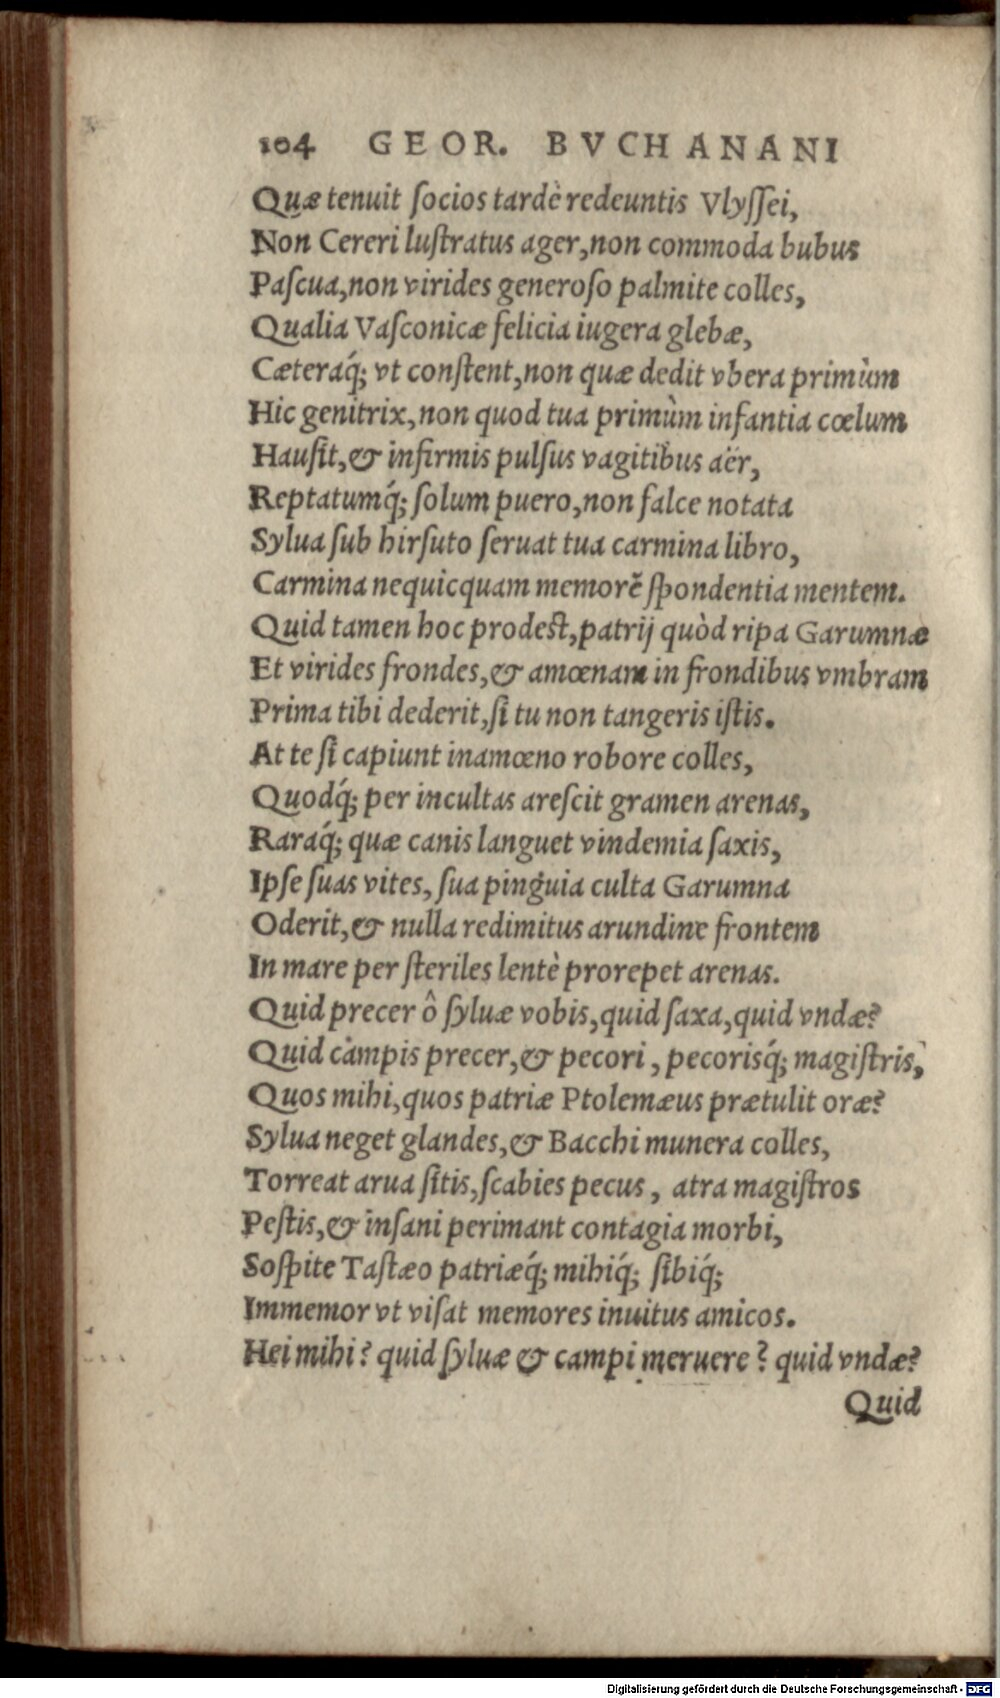 104 GEOR. BVCHANANI
Quæ tenuit ſocios tardè redeuntis Vlyſſei,
Non Cereri luſtratus ager, non commoda bubus
Paſcua, non virides generoſo palmite colles,
Qualia Vaſconicæ felicia iugera glebæ,
Cæteraq́; vt conſtent, non quæ dedit vbera primùm
Hic genitrix, non quod tua primùm infantia cœlum
Hauſit, & infirmis pulſus vagitibus aër,
Reptatumq́; ſolum puero, non falce notata
Sylua ſub hirſuto ſeruat tua carmina libro,
Carmina nequicquam memorē ſpondentia mentem.
Quid tamen hoc prodeſt, patrij quòd ripa Garumnæ
Et virides frondes, & amœnam in frondibus vmbram
Prima tibi dederit, ſi tu non tangeris iſtis.
At te ſi capiunt inamœno robore colles,
Quodq́; per incultas areſcit gramen arenas,
Raraq́; quæ canis languet vindemia ſaxis,
Ipſe ſuas vites, ſua pinguia culta Garumna
Oderit, & nulla redimitus arundine frontem
In mare per ſteriles lentè prorepet arenas.
Quid precer ô ſyluæ vobis, quid ſaxa, quid vndæ?
Quid campis precer, & pecori, pecorisq́; magiſtris,
Quos mihi, quos patriæ Ptolemæus prætulit oræ?
Sylua neget glandes, & Bacchi munera colles,
Torreat arua ſitis, ſcabies pecus, atra magiſtros
Peſtis, & inſani perimant contagia morbi,
Soſpite Taſtæo patriæq́; mihiq́; ſibiq́;
Immemor vt viſat memores inuitus amicos.
Hei mihi? quid ſyluæ & campi meruere? quid vndæ?
Quid
Digitalisierung gefördert durch die Deutsche Forschungsgemeinschaft - DFG